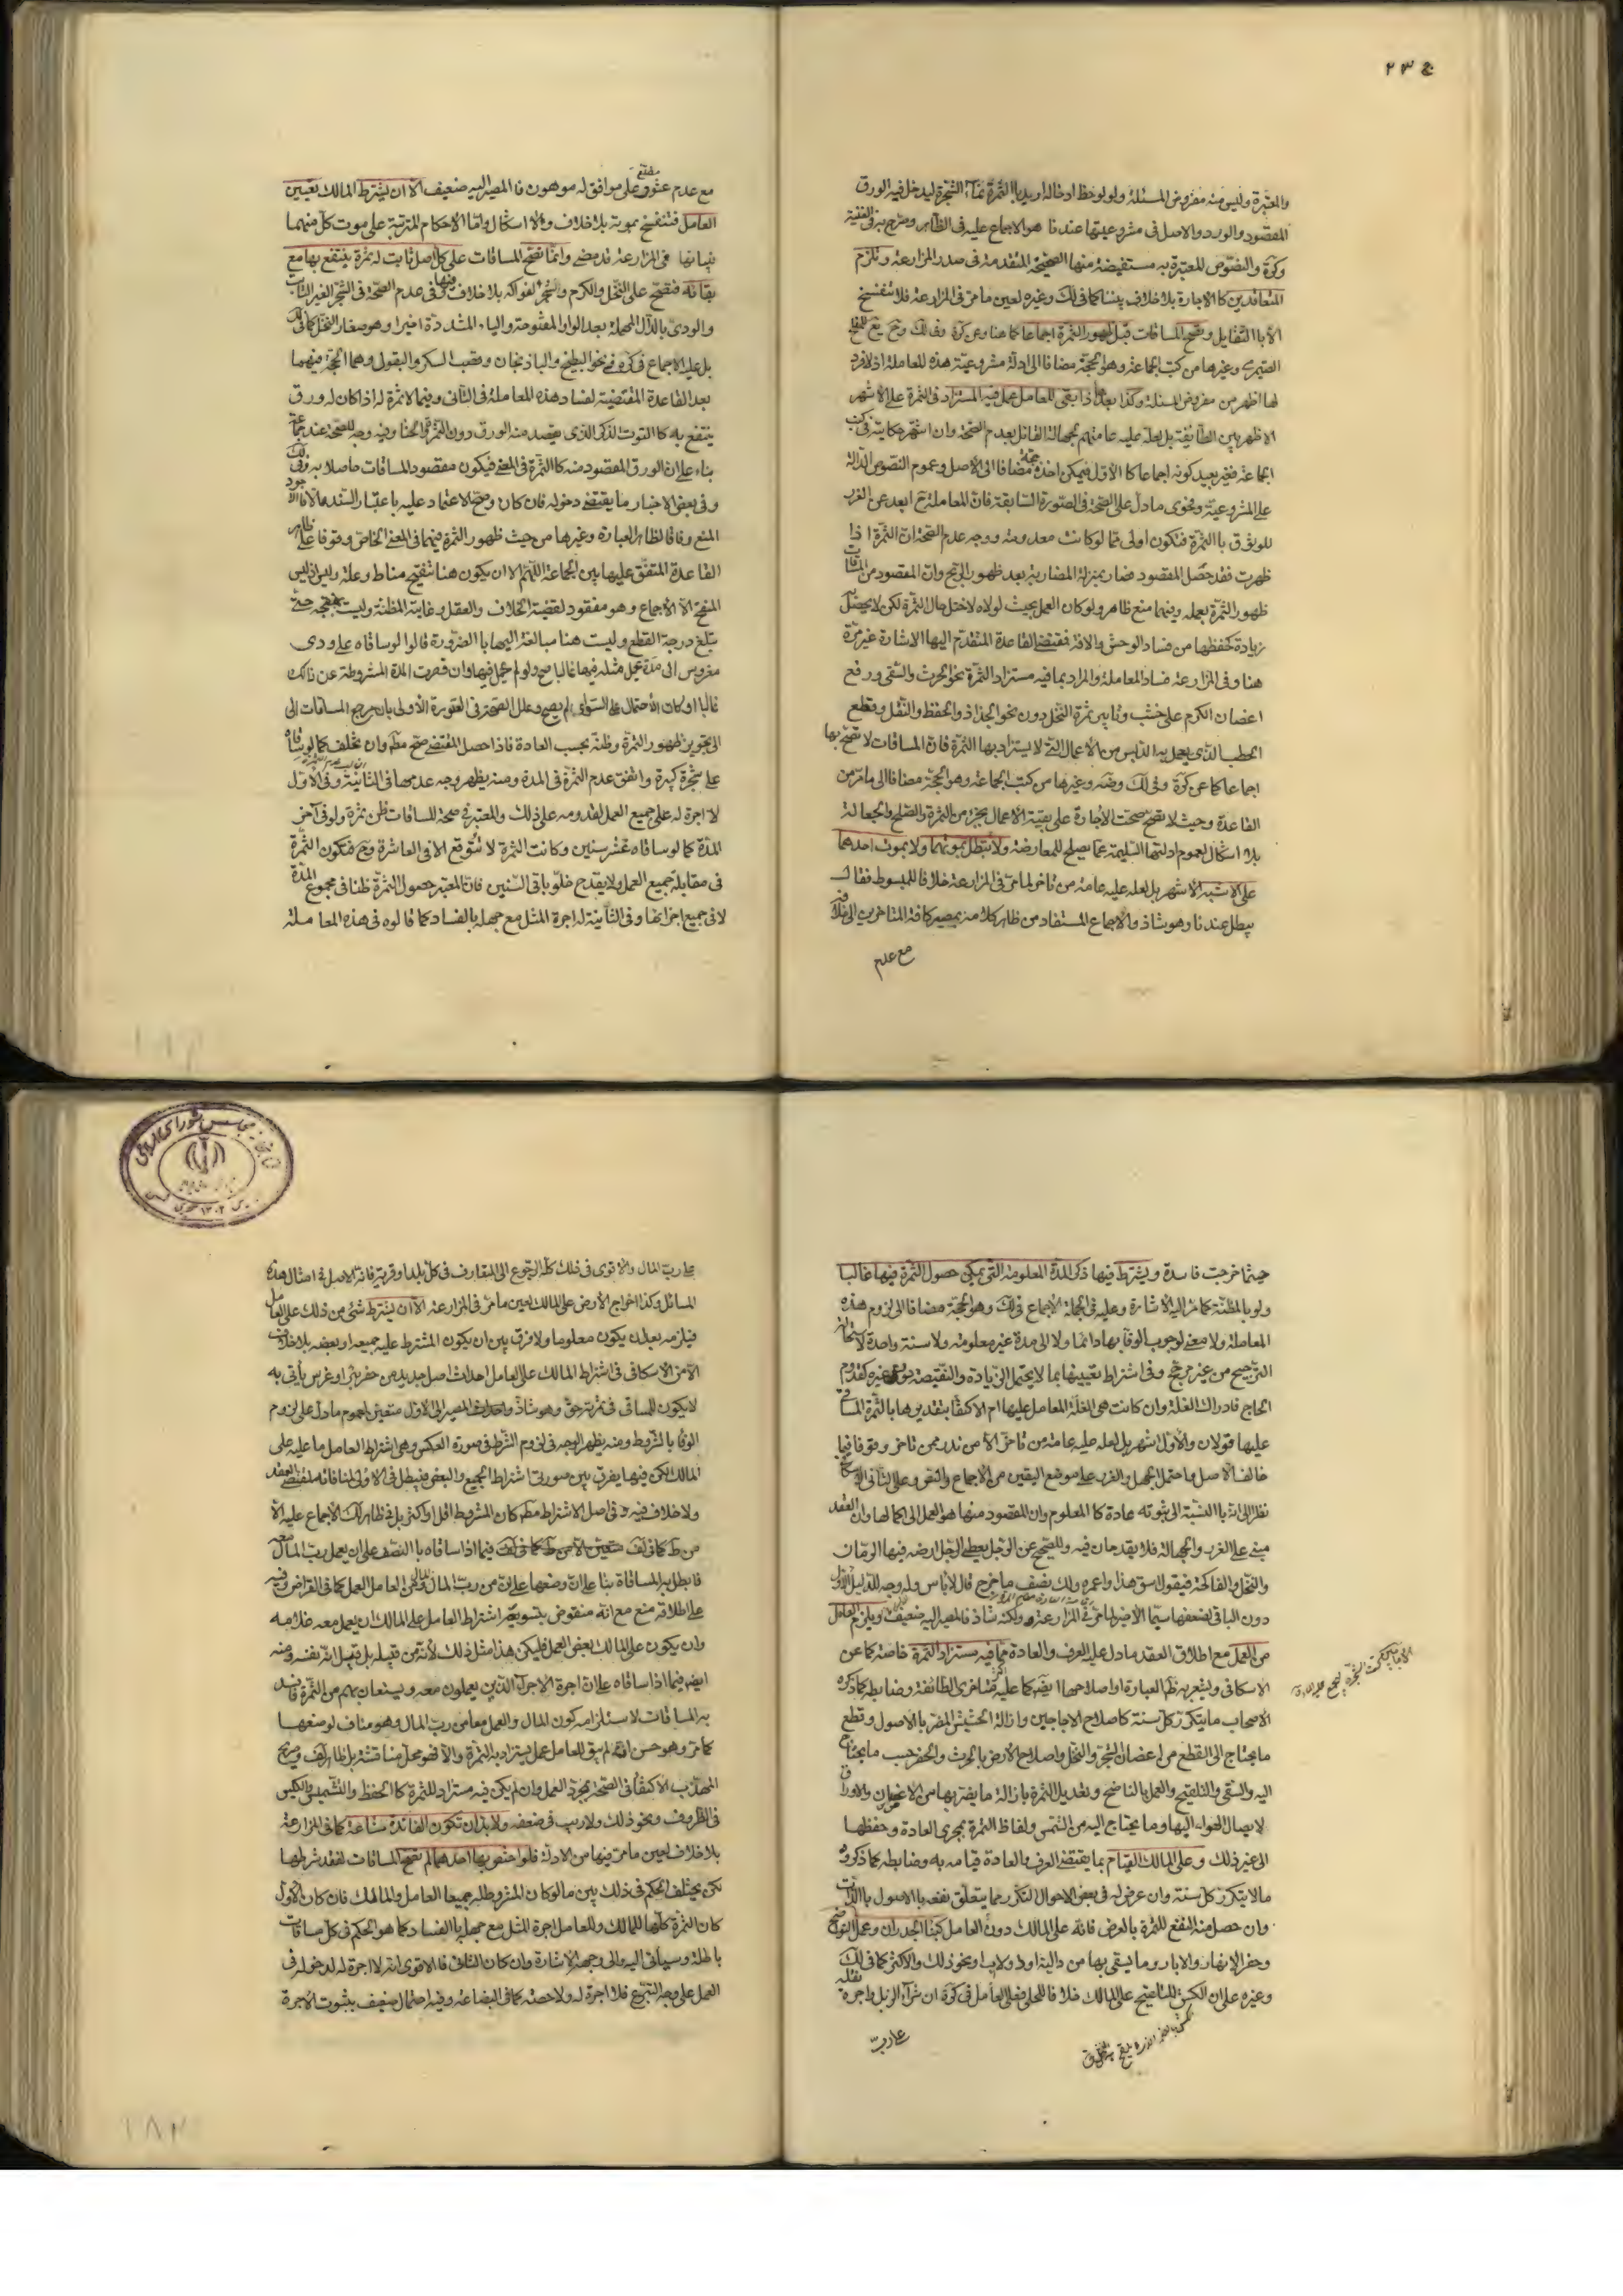 ج ٢٣
والمعتبرة وليس منه مفروض المسئلة ولو لوحظ ادخاله اريد بالثمرة نماء الشجرة ليدخل فيه الورق
المقصود والورد والاصل فى مشروعيتها عندنا هو الاجماع عليه فى الظاهر وصرح به فى الغنية
وكرة والنصوص المعتبرة به مستفيضة منها الصحيحة المتقدمة فى صدر المزارعة وتلزم
المتعاقدين كالاجارة بلا خلاف بيننا كما فى لك وغيره لعين ما مر فى المزارعة فلا تنفسخ
الا بالتقايل وتصح المساقات قبل ظهور الثمرة اجماعا كما هنا وعن كرة وفى لك
وغيرها من كتب الجماعة وهو الحجة مضافا الى ادلة مشروعية هذه المعاملة اذ لا فرد
لها اظهر من مفروض المسئلة وكذا بعدها اذا بقى للعامل عمل فيه المستزاد فى الثمرة على الاشهر
الاظهر بين الطائفة بل لعله عليه عامتهم لجهالة القائل بعدم الصحة وان اشتهر حكايته فى كتب
الجماعة فغير بعيد كونه اجماعا كالاول فيمكن اخذه حجة مضافا الى الاصل وعموم النصوص الدالة
على المشروعية وفحوى ما دل على الصحة فى الصورة السابقة فان المعاملة ح ابعد عن الغرر
للوثوق بالثمرة فتكون اولى مما لو كانت معدومة ووجه عدم الصحة ان الثمرة اذا
ظهرت فقد حصل المقصود فصار بمنزلة المضاربة بعد ظهور الربح وان المقصود من المساقات
ظهور الثمرة بعمله وفيهما منع ظاهر ولو كان العمل بحيث لولاه لاختل حال الثمرة لكن لا يحصل به
زيادة كحفظها من فساد الوحش والافة فمقتضى القاعدة المتقدم اليها الاشارة غير مرة
هنا وفى المزارعة فساد المعاملة والمراد بما فيه مستزاد الثمرة نحو الحرث والسقى ورفع
اغصان الكرم على خشب وتابير ثمرة النخل دون نحو الجذاذ والحفظ والنقل وقطع
الحطب الذى يعمل به الدبس من الاعمال التى لا يستزاد بها الثمرة فان المساقات لا تصح بها
اجماعا كما عن كرة وفى لك وضه وغيرها من كتب الجماعة وهو الحجة مضافا الى ما مر من
القاعدة وحيث لا تصح صحت الاجارة على بقية الاعمال بجزء من الثمرة والصلح والجعالة
بلا اشكال لعموم ادلتها السليمة عما يصلح للمعارضة ولا تبطل بموتهما ولا بموت احدهما
على الاشبه الاشهر بل لعله عليه عامة من تاخر لما مر فى المزارعة خلافا للمبسوط فقال
يبطل عندنا وهو شاذ والاجماع المستفاد من ظاهر كلامه بمصير كافة المتاخرين الى خلافه
مع عدم
مع عدم عثور على موافق له موهون فالمصير اليه ضعيف الا ان يشترط المالك تعيين
العامل فتنفسخ بموته بلا خلاف ولا اشكال واما الاحكام المترتبة على موت كل منهما
فبيانها فى المزارعة قد مضى وانما تصح المساقات على كل اصل ثابت له ثمرة ينتفع بها مع
بقائه فتصح على النخل والكرم وشجر الفواكه بلا خلاف فيها كما فى عدم الصحة فى الشجر الغير الثابت
والودى بالدال المهملة بعد الواو المفتوحة والياء المشددة اخيرا وهو صغار النخل كما فى لك
بل عليه الاجماع فى كرة فى نحو البطيخ والباذنجان وقصب السكر والبقول وهما الحجة فيهما
بعد القاعدة المقتضية لفساد هذه المعاملة فى الثانى وفيما لا ثمرة له اذا كان له ورق
ينتفع به كالتوت الذكر الذى يقصد منه الورق دون الثمرة والحنا وفيه وجه للصحة عند جماعة
بناء على ان الورق المقصود منه كالثمرة فى المعنى فيكون مقصود المساقات حاصلا به وفى لك
وفى بعض الاخبار ما يقتضى دخوله فان كان وصح الاعتماد عليه باعتبار السند والا فالاجود
المنع وفاقا لظاهر العبارة وغيرها من حيث ظهور الثمرة فيهما فى المعنى الخاص وقوفا على ظاهر
القاعدة المتفق عليها بين الجماعة اللهم الا ان يكون هنا تنقيح مناط وعلة وليس اذ ليس
المنقح الا الاجماع وهو مفقود لقضية الخلاف والعقل وغايته المظنة وليست بحجة حتى
تبلغ درجة القطع وليست هنا مبالغة اليها بالضرورة قالوا لو ساقاه على ودى
مغروس الى مدة يحمل مثله فيها غالبا صح ولو لم يحمل فيها وان قصرت المدة المشروطة عن ذلك
غالبا او كان الاحتمال على السواء لم يصح وعلل الصحة فى الصورة الاولى بان مرجع المساقات الى
الى تجويز ظهور الثمرة وظنه بحسب العادة فاذا حصل المقتضى صح مطم وان تخلف كما لو ساقاه
على شجرة كبيرة واتفق عدم الثمرة فى المدة ومنه يظهر وجه عدمها فى الثانية وفى الاول
لا اجرة له على جميع العمل لقدومه على ذلك والمعتبر فى صحة المساقات ظن ثمرة ولو فى آخر
المدة كما لو ساقاه عشر سنين وكانت الثمرة لا تتوقع الا فى العاشرة وح فتكون الثمرة
فى مقابلة جميع العمل ولا يقدح خلو باقى السنين فان المعتبر حصول الثمرة ظنا فى مجموع المدة
لا فى جميع اجزائها وفى الثانية له اجرة المثل مع جهله بالفساد كما قالوه فى هذه المعاملة
حيثما خرجت فاسدة ويشترط فيها ذكر المدة المعلومة التى يمكن حصول الثمرة فيها غالبا
ولو بالمظنة كما مر اليه الاشارة وعليه فى الجملة الاجماع فى لك وهو الحجة مضافا الى لزوم هذه
المعاملة ولا معنى لوجوب الوفا بها دائما ولا الى مدة غير معلومة ولا سنة واحدة لاستحالة
الترجيح من غير مرجح وفى اشتراط تعيينها بما لا يحتمل الزيادة والنقيصة دون غيره كقدوم
الحاج وادراك الغلة وان كانت هى الغلة المعامل عليها ام الاكتفا بتقديرها بالثمرة المساقى
عليها قولان والاول اشهر بل لعله عليه عامة من تاخر الا من ندر ممن تاخر وقوفا فيما
خالف الاصل واحتمل الجهل والغرر على موضع اليقين من الاجماع والنص وعلى الثانى الاسكافى
نظرا الى انه بالنسبة الى ثبوته عادة كالمعلوم وان المقصود منها هو العمل الى اكمالها وان العقد
مبنى على الغرر والجهالة فلا يقدحان فيه وللصحيح عن الرجل يعطى الرجل ارضه فيها الرمان
والنخل والفاكهة فيقول اسق هذا واعمره ولك نصف ما خرج قال لا باس وله وجه للدليل الاول
دون الباقى لضعفها سيما الاخير لما مر فى المزارعة ولكنه شاذ فالمصير اليه ضعيف ويلزم العامل
من العمل مع اطلاق العقد ما دل عليه العرف والعادة مما فيه مستزاد الثمرة خاصة كما عن
الاسكافى ويشعر به ظ العبارة او اصلاحها ايضم كما عليه متاخرى الطائفة وضابطه كما ذكره
الاصحاب ما يتكرر كل سنة كاصلاح الاجاجين وازالة الحشيش المضر بالاصول وقطع
ما يحتاج الى القطع من اغصان الشجر والنخل واصلاح الارض بالحرث والحفر حيث ما يحتاج
اليه والسقى والتلقيح والعمل بالناضح وتعديل الثمرة بازالة ما يضر بها من الاغصان والاوراق
لايصال الهواء اليها وما يحتاج اليه من الشمس ولقاط الثمرة بمجرى العادة وحفظها
الى غير ذلك وعلى المالك القيام بما يقتضى العرف والعادة قيامه به وضابطه كما ذكروه
ما لا يتكرر كل سنة وان عرض له فى بعض الاحوال التكرر مما يتعلق نفعه بالاصول بالذات
وان حصل منه النفع للثمرة بالعرض فانه على المالك دون العامل كبناء الجدران وعمل النواضح
وحفر الانهار والابار وما يسقى بها من دالية او دولاب ونحو ذلك والاكثر كما فى لك
وغيره على ان الكش للتلقيح على المالك خلافا للحلى فعلى العامل فى كرة ان شراء الزبل واجرة نقله
على رب
على رب المال والاقوى فى ذلك كله الرجوع الى المتعارف فى كل بلد او قرية فانه الاصل فى امثال هذه
المسائل وكذا اخراج الارض على المالك لعين ما مر فى المزارعة الا ان يشترط شئ من ذلك على العامل
فيلزمه بعد ان يكون معلوما ولا فرق بين ان يكون المشترط عليه جميعه او بعضه بلا خلاف
الا من الاسكافى فى اشتراط المالك على العامل احداث اصل جديد من حفر بئر او غرس يأتى به
لا يكون للمساقى فى ثمرته حق وهو شاذ والمصير الى الاول متعين لعموم ما دل على لزوم
الوفا بالشروط ومنه يظهر الوجه فى لزوم الشرط فى صورة العكس وهى اشتراط العامل ما عليه على
المالك لكن فيها يفرق بين صورتى اشتراط الجميع والبعض فيبطل فى الاولى لمنافاته لمقتضى العقد
ولا خلاف فيه وفى اصل الاشتراط مطم كان المشروط اقل او اكثر بل فى ظاهر لك الاجماع عليه الا
من ط كما فى لف فيما اذا ساقاه بالنصف على ان يعمل رب المال معه
فابطل به المساقاة بنا على ان وضعها على ان من رب المال المال ومن العامل العمل كما فى القراض وفيه
على اطلاقه منع مع انه منقوض بتسويغه اشتراط العامل على المالك ان يعمل معه غلامه
وان يكون على المالك بعض العمل فليكن هذا مثل ذلك لانه من قبيله بل قيل انه نفسه ومنه
ايضم فيما اذا ساقاه على ان اجرة الاجراء الذين يعملون معه ويستعان بهم من الثمرة فافسد
به المساقات لاستلزامه كون المال والعمل معا من رب المال وهو مناف لوضعها
كما مر وهو حسن ان لم يبق للعامل عمل يستزاد به الثمرة والا فهو محل مناقشة بل ظاهر لف وصريح
المهذب الاكتفا فى الصحة بمجرد العمل وان لم يكن فيه مستزاد للثمرة كالحفظ والتشميس والكبس
فى الظروف ونحو ذلك ولا ريب فى ضعفه ولا بد ان تكون الفائدة مشاعة كما فى المزارعة
بلا خلاف لعين ما مر فيها من الادلة فلو اختص بها احدهما لم تصح المساقات لفقد شرطها
لكن يختلف الحكم فى ذلك بين ما لو كان المشروط له جميعا العامل والمالك فان كان الاول
كان الثمرة كلها للمالك وللعامل اجرة المثل مع جهله بالفساد كما هو الحكم فى كل مساقات
باطلة وسيأتى اليه والى وجهه الاشارة وان كان الثانى فالاقوى انه لا اجرة له لدخوله فى
العمل على وجه التبرع فلا اجرة له ولا حصة كما فى البضاعة وفيه احتمال ضعيف بثبوت الاجرة